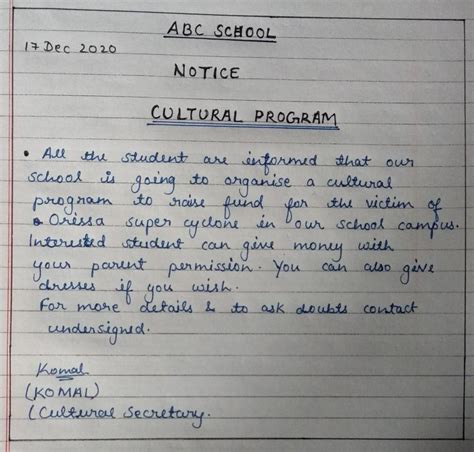 ABC SCHOOL
17 Dec 2020
NOTICE
CULTURAL PROGRAM
• All the student are informed that our
school is going to organise a cultural
program to raise fund for the victim of
Orissa super cyclone in our school campus.
Interested student can give money with
your parent permission. You can also give
dresses if you wish.
For more details & to ask doubts contact
undersigned.
Komal
(KOMAL)
(Cultural Secretary.